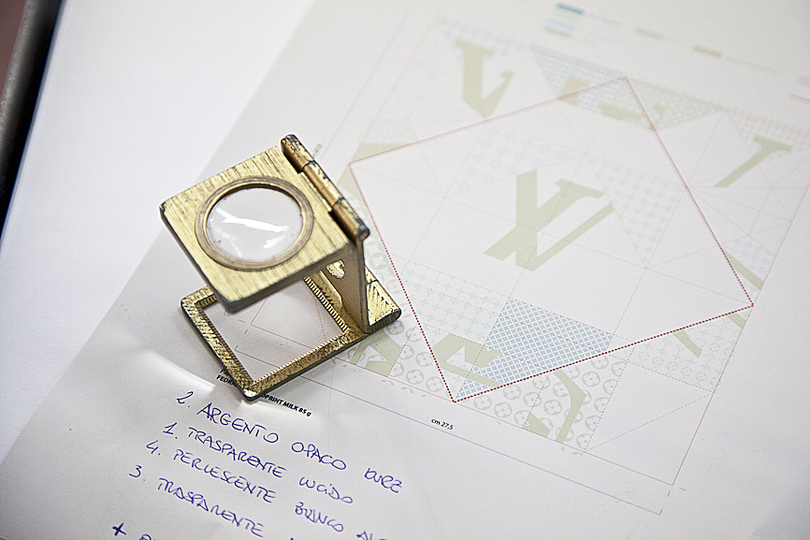 PRINT MILK 85 g
FEDR
cm 27,5
2. ARGENTO OPACO KURZ
1. TRASPARENTE LUCIDO
4. PERLESCENTE BIANCO
3. TRASPARENTE
+